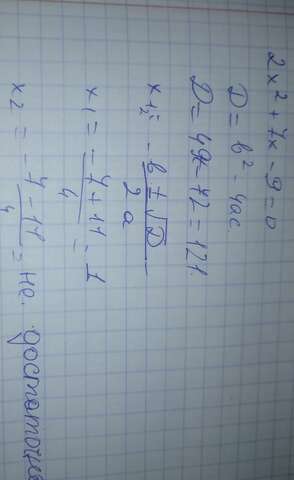 2x² + 7x - 9 = 0
D = b² - 4ac
D = 49 - 72 = 121
x₁,₂ = -b ± √D / 2a
x₁ = -7 + 11 / 4 = 1
x₂ = -7 - 11 / 4 = не достаточно